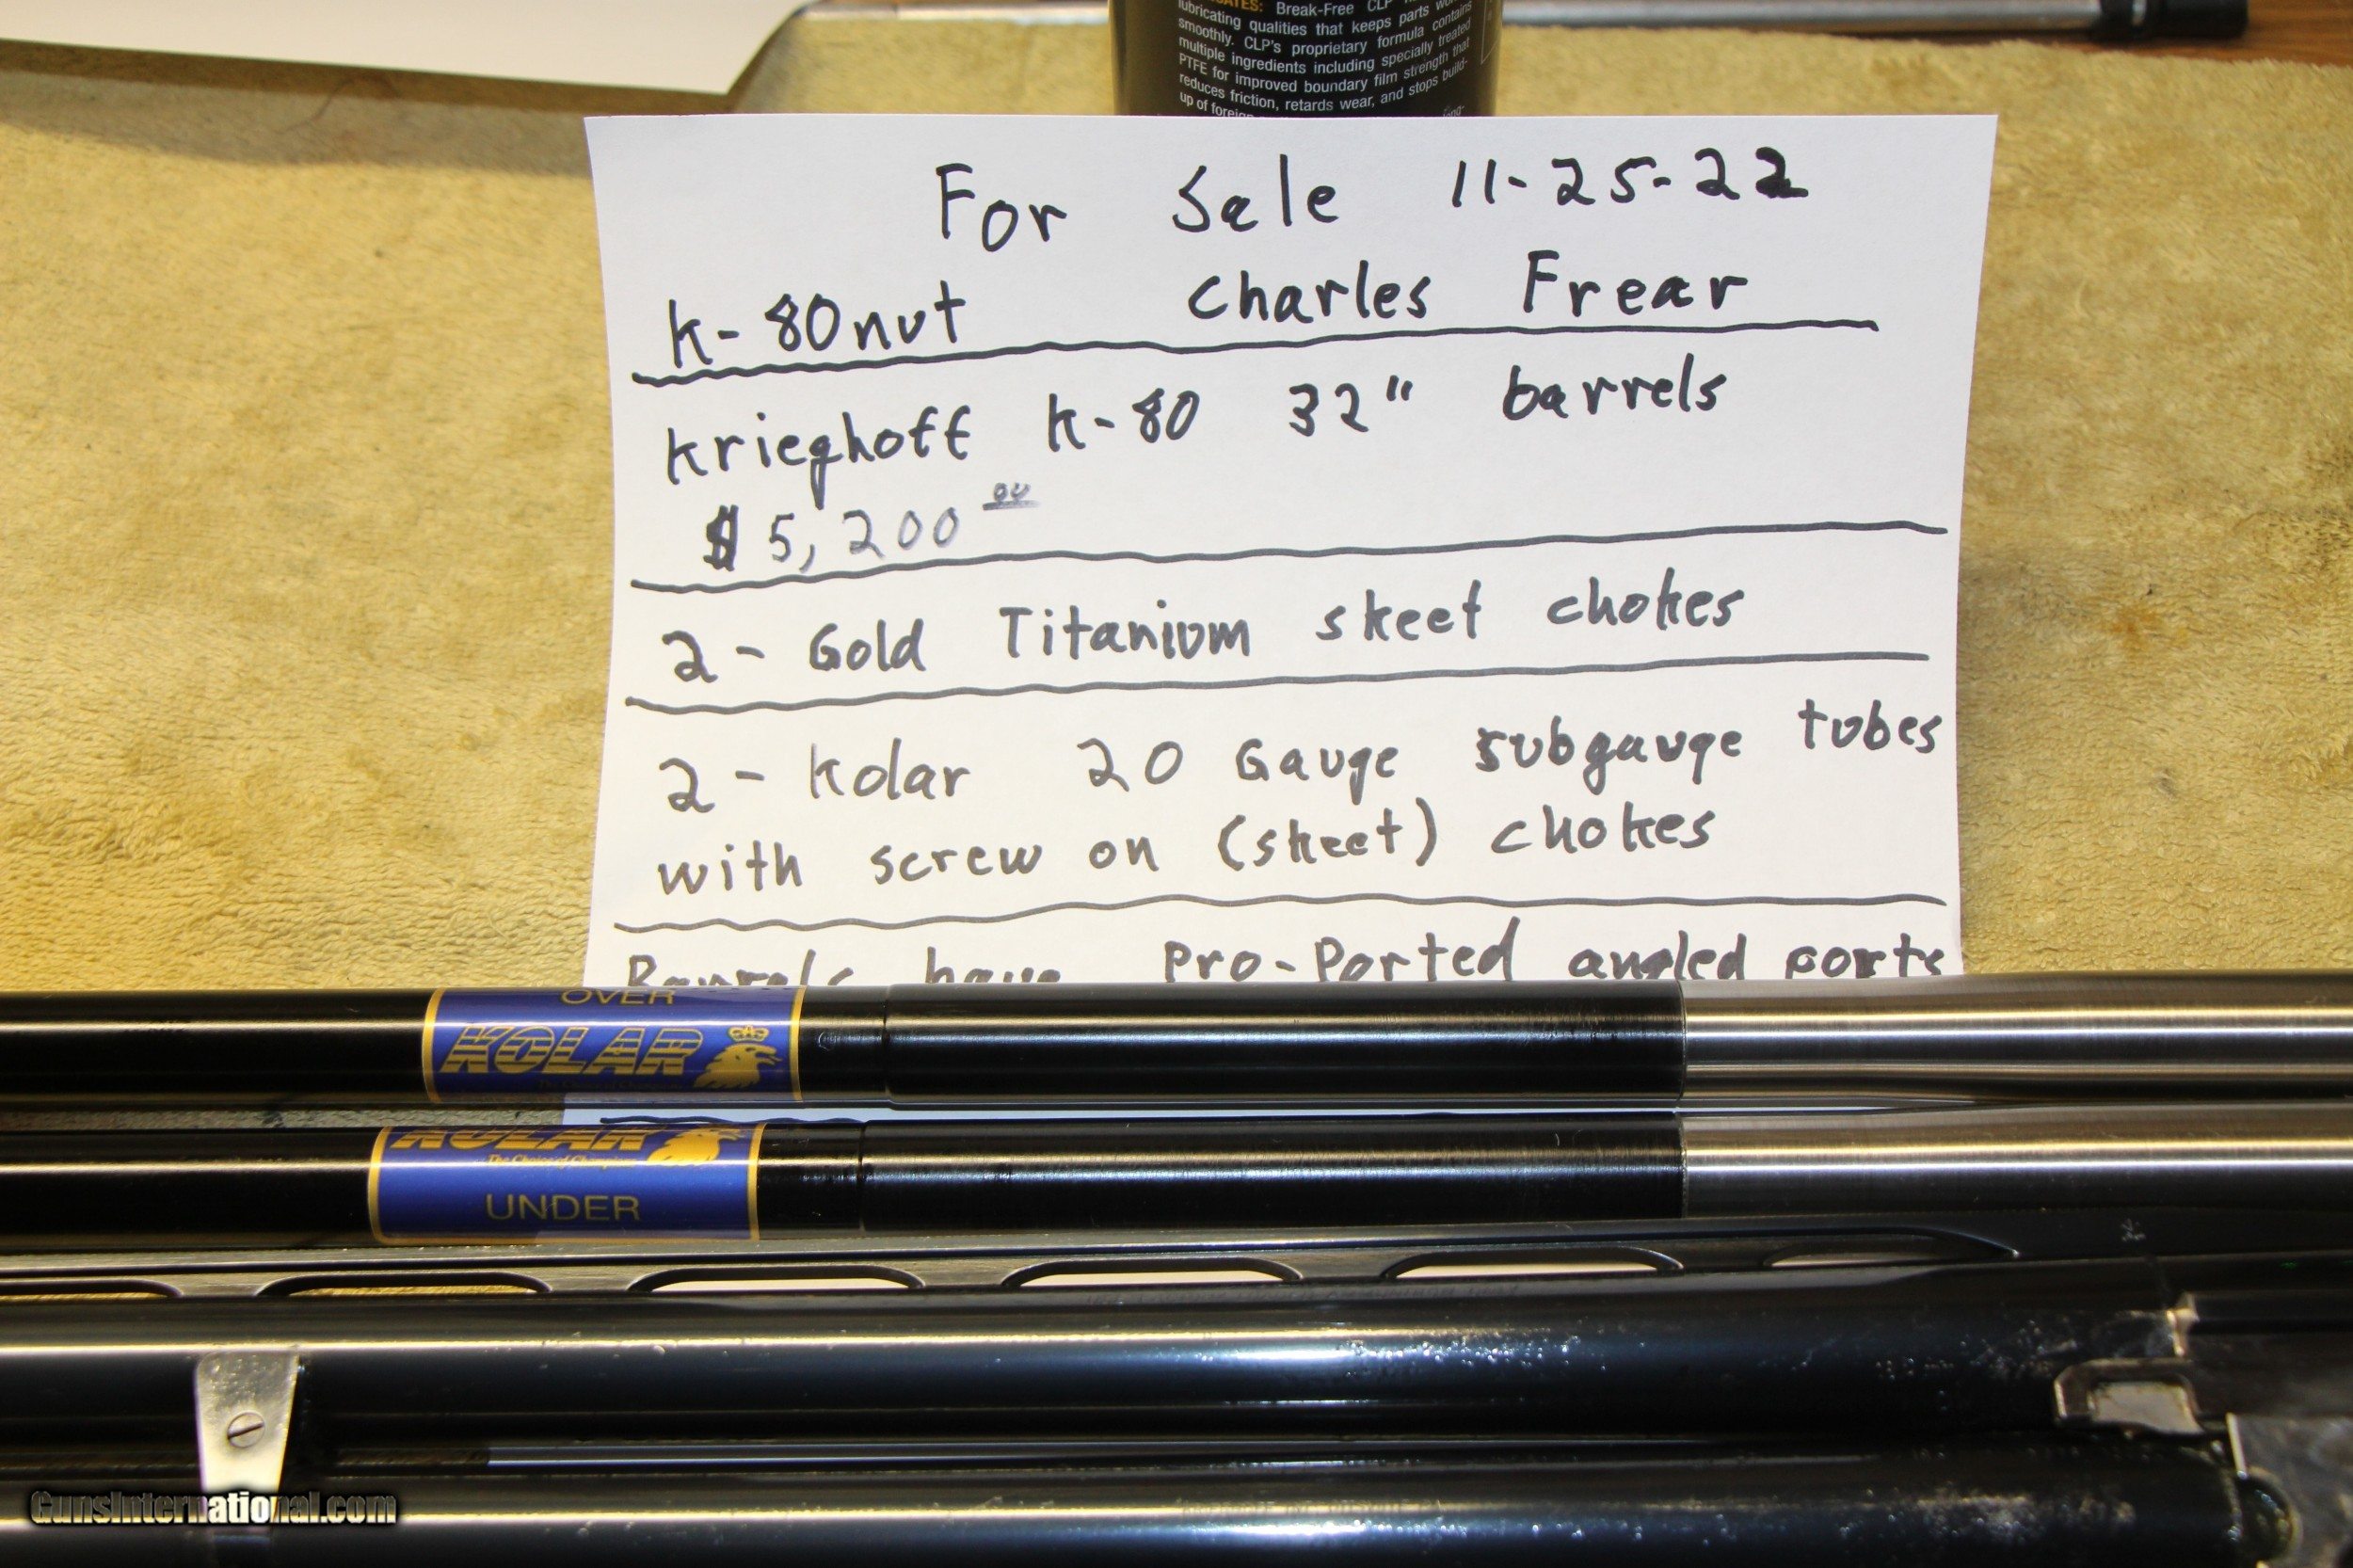 CATES: Break-Free CLP
lubricating qualities that keeps parts
smoothly. CLP's proprietary formula contains
multiple ingredients including specially treated
PTFE for improved boundary film strength that
reduces friction, retards wear, and stops build-
up of foreign
For Sale 11-25-22
K-80nut Charles Frear
Krieghoff K-80 32" barrels
$5,200 00
2- Gold Titanium skeet chokes
2- Kolar 20 Gauge subgauge tubes
with screw on (skeet) chokes
Barrels have Pro-Ported angled ports
OVER
KOLAR
The Choice of Champions
KOLAR
The Choice of Champions
UNDER
GunsInternational.com